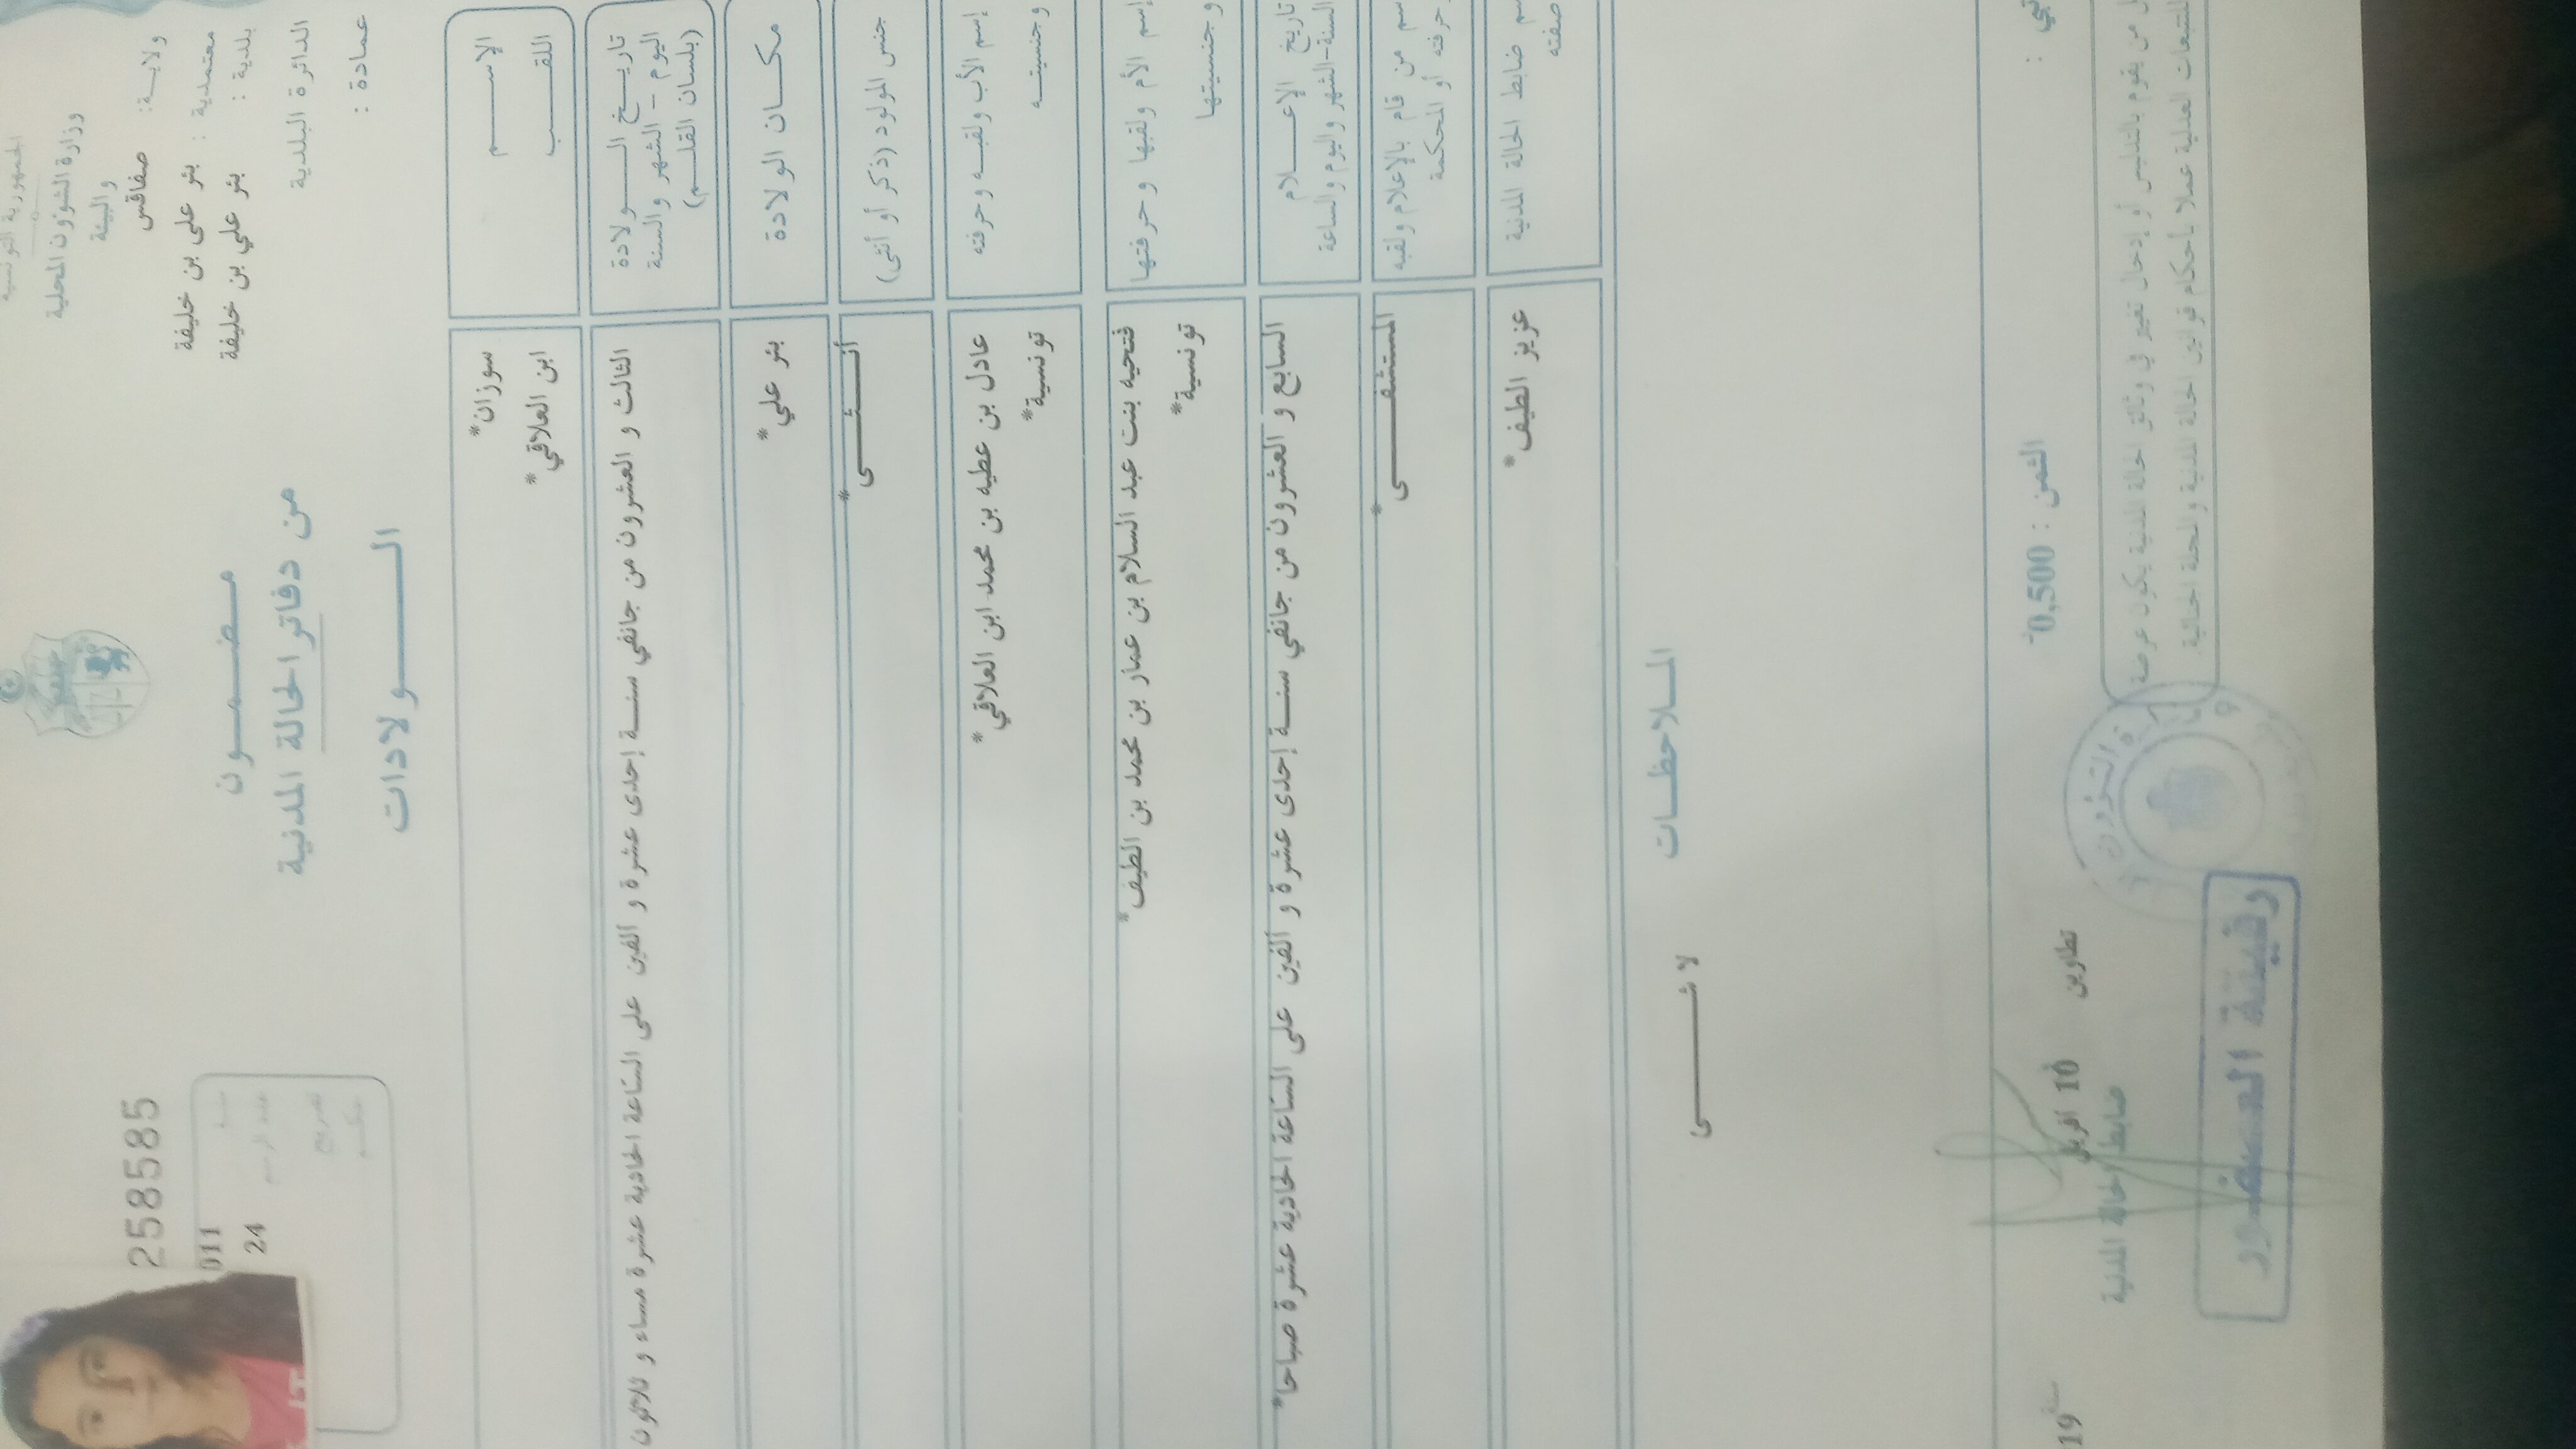 الجمهورية التونسية
وزارة الشؤون المحلية
والبيئة
ولايـــة: صفاقس
معتمدية : بئر علي بن خليفة
بلدية : بئر علي بن خليفة
الدائرة البلدية
عمادة :
مـــضـــمـــون
من دفاتر الحالة المدنية
الــــــولادات
258585
سنة 011
عدد الرسم 24
تصريح
حكـــم
الإســــم
اللقـــــب
سوزان*
ابن العلاقي*
تاريـــخ الــــولادة
اليوم – الشهر والسنة
(بلسان القلـــم)
الثالث و العشرون من جانفي سنـــة إحدى عشرة و ألفين على السّاعة الحادية عشرة مساء و ثلاثون
مكـــان الولادة
بئر علي*
جنس المولود (ذكر أو أنثى)
أنـــثـــى*
إسم الأب ولقبـــه وحرفته
وجنسيتـــه
عادل بن عطيه بن محمد ابن العلاقي*
تونسية*
إسم الأم ولقبها وحرفتها
وجنسيتها
فتحيه بنت عبد السلام بن عمار بن محمد بن الطيف*
تونسية*
تاريخ الإعـــلام
السنة-الشهر واليوم والساعة
السابع و العشرون من جانفي سنـــة إحدى عشرة و ألفين على السّاعة الحادية عشرة صباحا*
سم من قام بالإعلام ولقبه
حرفته أو المحكمة
المستشفـــــى*
سم ضابط الحالة المدنية
صفته
عزيز الطيف*
المـــلاحظـــات
لا شـــــــى
الثمن : 0,500
تطاوين 10 أفريل
سنة 19
ضابط الحالة المدنية
ل من يقوم بالتدليس أو إدخال تغيير في وثائق الحالة المدنية يكون عرضة
للتبعات العدلية عملا بأحكام قوانين الحالة المدنية والمجلة الجنائية